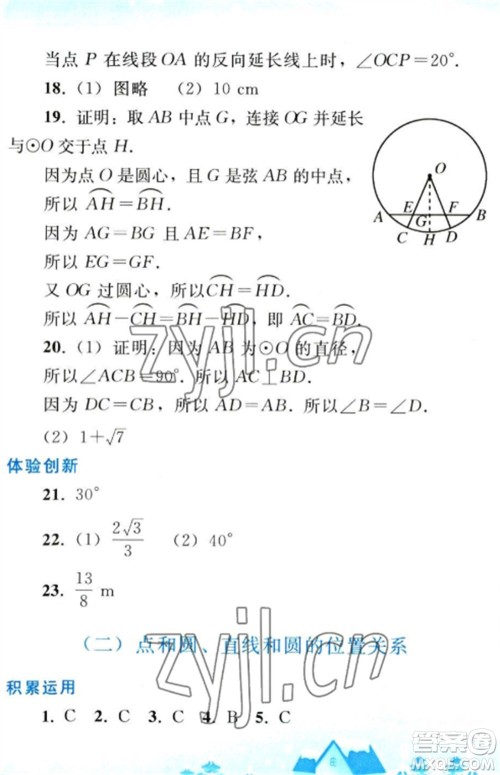 当点 P 在线段 OA 的反向延长线上时，∠OCP=20°.
18. (1) 图略 (2) 10 cm
19. 证明：取 AB 中点 G，连接 OG 并延长
与⊙O 交于点 H.
因为点 O 是圆心，且 G 是弦 AB 的中点，
所以 A͡H=B͡H.
因为 AG=BG 且 AE=BF，
所以 EG=GF.
又 OG 过圆心，所以 C͡H=H͡D.
所以 A͡H－C͡H=B͡H－H͡D，即 A͡C=B͡D.
O
A E G F B
C H D
20. (1) 证明：因为 AB 为⊙O 的直径，
所以∠ACB=90°. 所以 AC⊥BD.
因为 DC=CB，所以 AD=AB. 所以∠B=∠D.
(2) 1+√7
体验创新
21. 30°
22. (1) 2√3/3 (2) 40°
23. 13/8 m
(二) 点和圆、直线和圆的位置关系
积累运用
1. C 2. C 3. C 4. B 5. C
zyjl.cn
zyjl.cn